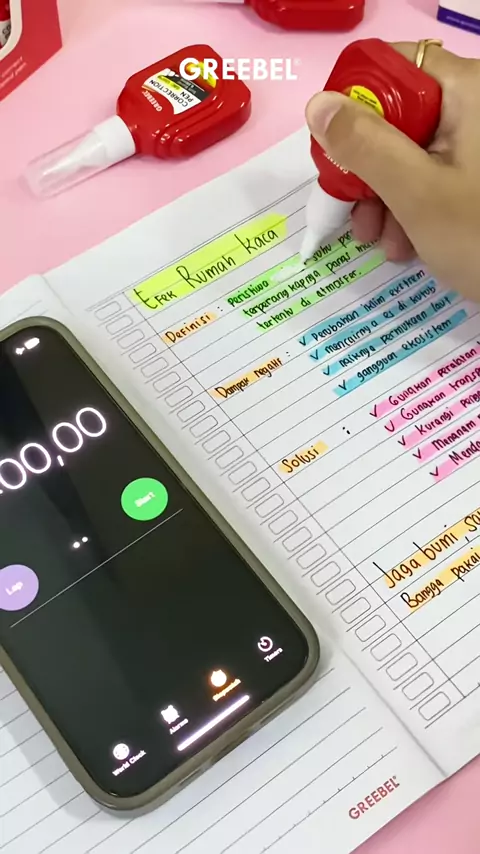 GREEBEL®
GREEBEL
CORRECTION
PEN
Efek Rumah Kaca
Definisi : Peristiwa suhu
terperangkapnya panas
tertentu di atmosfer.
Dampak Negatif : ✓ Perubahan iklim ekstrem
✓ mencairnya es di kutub
✓ naiknya permukaan laut
✓ gangguan ekosistem
Solusi : ✓ Gunakan peralatan
✓ Gunakan
✓ Kurangi
✓ Menanam
✓
Jaga bumi,
Bangga pakai
00,00
Start
Lap
World Clock
Alarms
Stopwatch
Timers
GREEBEL®